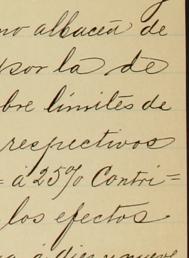 no albacea de
por la de
bre límites de
respectivos
= á 25% Contri=
los efectos
a á diez y nueve